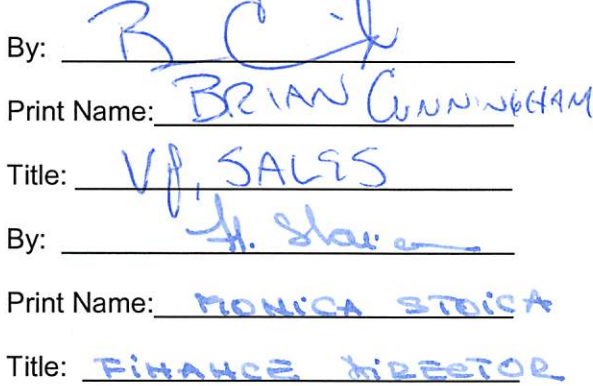 By: B C
Print Name: BRIAN CUNNINGHAM
Title: VP, SALES
By: M. Stoica
Print Name: MONICA STOICA
Title: FINANCE DIRECTOR